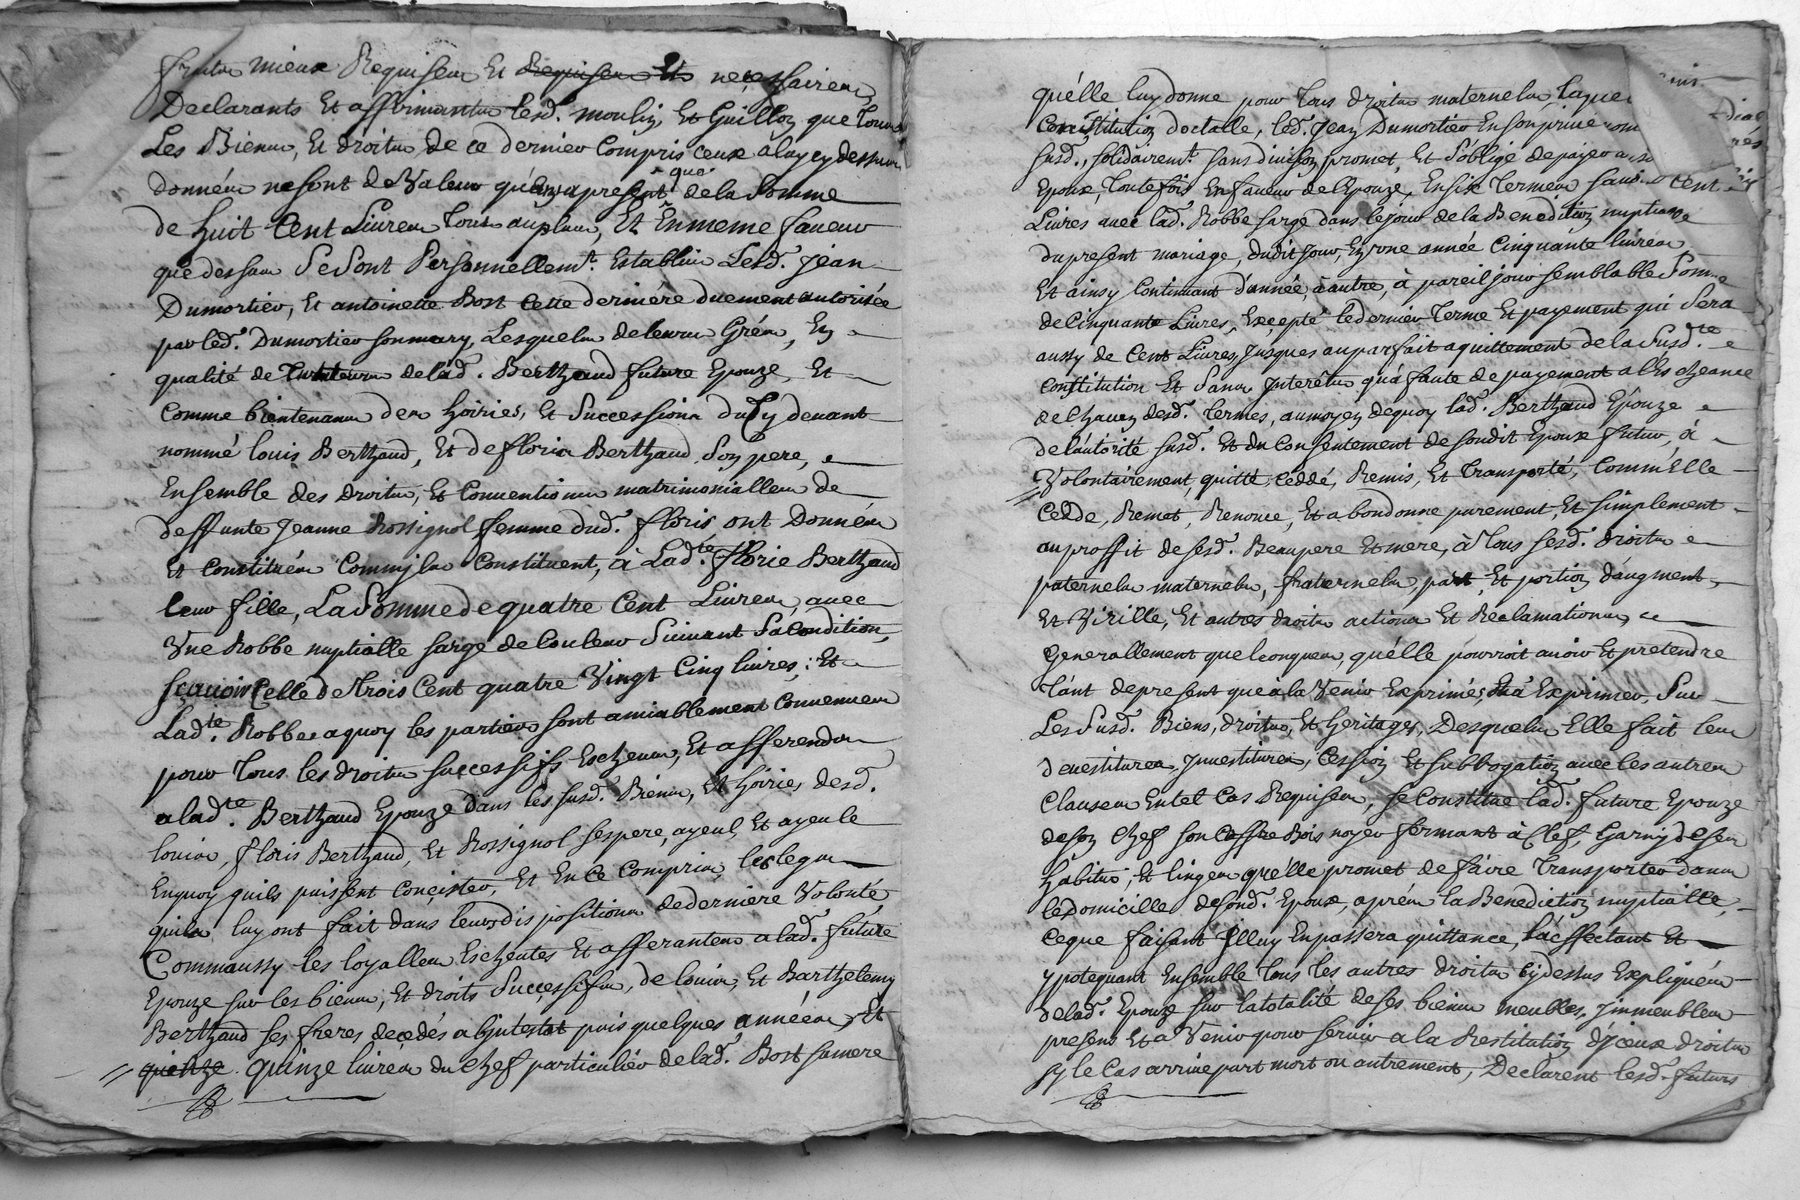 fruits mieux Requises Et Requises Et necessaires
Declarants Et affirmants lesd. moulin, Et Guillon que tous
Les Biens, Et droits de ce dernier compris ceux a luy cy dessus
donnés ne sont de Valeur quant a present que de la Somme
de huit Cent Livres tout au plus, Et En meme faveur
que dessus Se Sont Personnellemt. Establis Lesd. jean
Dumortier, Et antoinette Bost Cette derniére duement autorisée
par led. Dumortier son mary, Lesquels de leurs Grés, En
qualité de tuteurs de lad. Berthaud future Epouze, Et
Comme bientenans des hoiries, Et Successions du Cy devant
nommé louis Berthaud, Et de floris Berthaud Son pere,
Ensemble des Droits, Et Conventions matrimonialles de
deffunte Jeanne Rossignol femme dud. floris ont Donnés
Et Constitués Comm'ils Constituent, à Ladte. florie Berthaud
leur fille, La Somme de quatre Cent Livres, avec
Vne Robbe nuptialle sarge de Couleur Suivant Sa Condition,
sçavoir Celle de trois Cent quatre Vingt Cinq livres; Et
Ladte. Robbe a quoy les parties sont amiablement Convenues
pour tous les droits successifs Escheus, Et afferendans
a ladte. Berthaud Epouze dans les susd. Biens, Et hoiries desd.
louis, floris Berthaud, Et Rossignol ses pere, ayeul, Et ayeule
En quoy quils puissent Conçister, Et En Ce Compris les legas
quils luy ont fait dans leurs dispositions de derniere Volonté
Comm'aussy les loyalles Eschentes Et afferantes a lad. future
Epouze sur les biens, Et droits Successifs, de louis, Et Barthelemy
Berthaud ses freres decedés abintestat puis quelques années, Et
quinze quinze livres du Chef particulier de lad. Bost sa mere
qu'elle luy donne pour tous droits maternels, laquel
Constitution dotalle, led. Jean Dumortier En son prive nom
susd., solidairemt. sans division promet, Et S'oblige de payer
Epoux, toutefois En faveur de l'Epouze, En six termes sans cent
Livres avec lad. Robbe sarge dans le jour de la Benediction nuptialle
du present mariage, dudit jour, En vne année Cinquante livres
Et ainsy Continuant d'année, à autre, à pareil jour semblable Somme
de Cinquante Livres, Excepté le dernier terme Et payement qui Sera
aussy de Cent Livres, Jusques au parfait aquittement de la Susdte.
Constitution Et Sans Interêts qu'a faute de payement a l'Escheance
de Chacun desd. termes, au moyen de quoy lad. Berthaud Epouze
de l'autorité susd. Et du Consentement de soudit Epoux futur, à
Volontairement quitté, Ceddé, Remis, Et transporté, Comm'Elle
Cedde, Remet, Renonce, Et abondonne purement, Et simplement
au proffit de sesd. Beaupere Et mere, à tous sesd. droits
paternels maternels, fraternels, part, Et portion d'augment,
Et Virille, Et autres droits actions Et Reclamations
Generallement quelconques, qu'elle pourroit avoir Et pretendre
tant de present que a la Venir Exprimés, Et à Exprimer, Sur
Les Susd. Biens, droits, Et heritages, Desquels Elle fait leur
devestitures, Jnvestitures, Cession Et subrogation avec les autres
Clauses En tel Cas Requises, se Constitue lad. future Epouze
de son Chef son Coffre Bois noyer fermant à Clef, Garny de ses
habits, Et linges qu'elle promet de faire transporter dans
le Domicille de sond. Epoux, aprés la Benediction nuptialle,
Ce que faisant Jl luy En passera quittance, l'affectant Et
ypotequant Ensemble tous les autres droits Cydessus Expliqués
de lad. Epouze sur la totalité de ses biens meubles, Jmmeubles
presens Et a Venir pour servir a la Restitution d'jceux droits
sy le Cas arrive part mort ou autrement, Declarent lesd. futurs